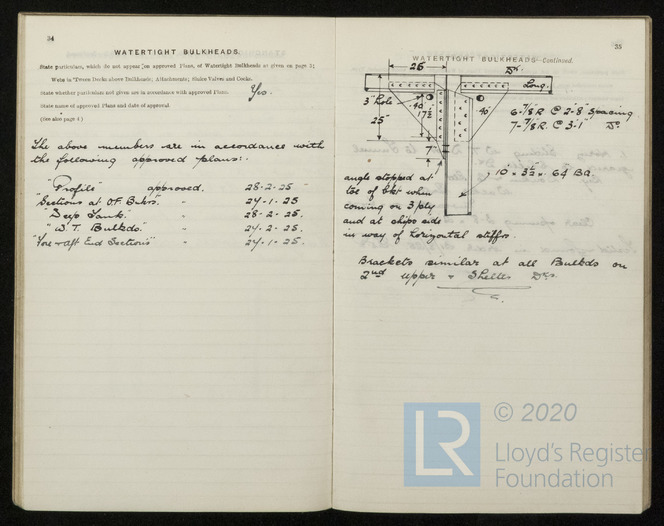 34
WATERTIGHT BULKHEADS.
State particulars, which do not appear on approved Plans, of Watertight Bulkheads as given on page 31
Webs in 'Tween Decks above Bulkheads; Attachments; Sluice Valves and Cocks.
State whether particulars not given are in accordance with approved Plans. Yes.
State name of approved Plans and date of approval
(See also page 4)
The above members are in accordance with
the following approved plans:-
"Profile" approved. 28-2-25
"Sections at O.F. Bnkrs." " 24-1-25
"Deep Tank." " 28-2-25.
"W.T. Bulkds." " 24-2-25.
"Fore & aft End Sections" " 24-1-25.
35
WATERTIGHT BULKHEADS—Continued.
26
Dk.
Long.
3" Hole
.40
.40
17½
25"
7"
6-7/8 R @ 2-8 Spacing
7-7/8 R. @ 3-1 Do.
10 × 3½ × .64 BA.
angle stopped at
toe of bkt when
coming on 3 ply
and at chips side
in way of horizontal stiffrs.
Brackets similar at all Bulkds on
2nd upper & Shelter Dks.
© 2020
LR
Lloyd's Register
Foundation